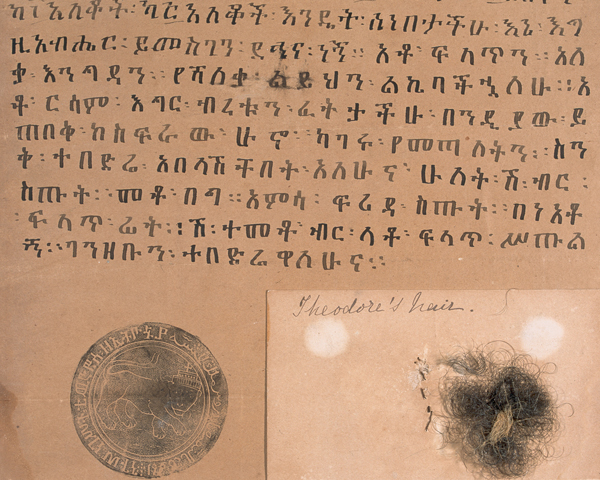 አለቆች፡ እንዴት፡ ሰነበታችሁ፡ እኔ፡ እግ
ዚአብሔር፡ ይመስገን፡ ደኅና፡ ነኝ። አቶ፡ ፍላጥን። አለ
ቃ፡ እንግዳን። የሻለቃ፡ ልኪባችኋለሁ። አ
ቶ፡ ርሳም፡ እግር፡ ብረቱን፡ ፈትታችሁ፡ በንዲያው፡ ይ
ጠበቅ፡ ከሰፍራው፡ ሁኖ። ካገሩ፡ የመጣለትን። ስን
ቅ፡ ተበድሬ፡ አበላሽችበት፡ አለሁና፡ ሁለት፡ ሺ፡ ብር፡
ስጡት። መቶ፡ በግ። አምሳ፡ ፍሪዳ፡ ስጡት። በነአቶ
፡ፍላጥ፡ ፊት። ሺ፡ ተመቶ፡ ብር፡ ላቶ፡ ፍላጥ፡ ሥጡል
ኝ። ገንዘቡን፡ ተበድሬዋለሁና።
Theodore's hair.